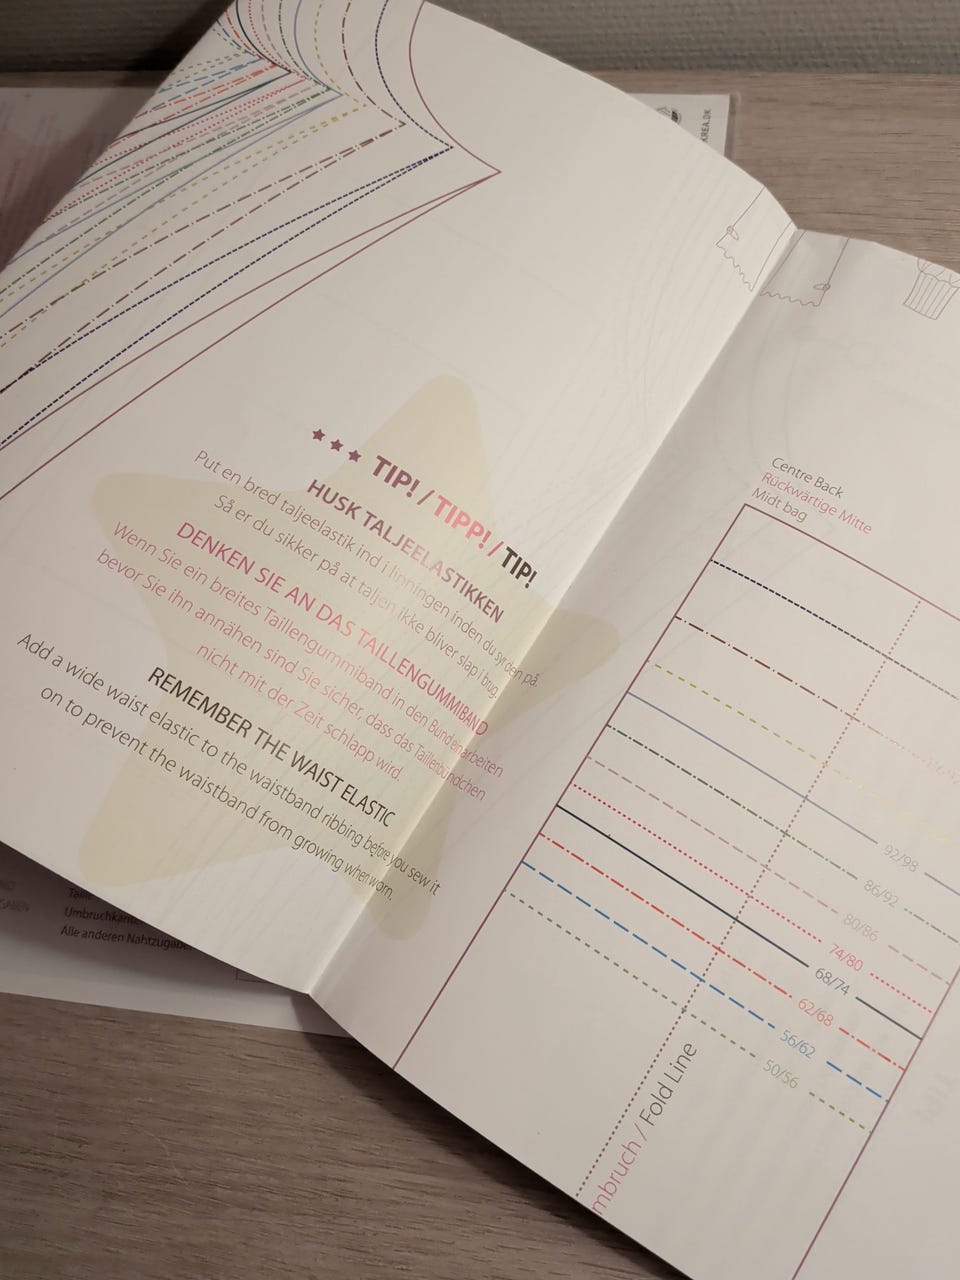 TIP! / TIPP! / TIP!
HUSK TALJEELASTIKKEN
Put en bred taljeelastik ind i linningen inden du syr den på.
Så er du sikker på at taljen ikke bliver slap i brug.
DENKEN SIE AN DAS TAILLENGUMMIBAND
Wenn Sie ein breites Taillengummiband in den Bund einarbeiten
bevor Sie ihn annähen sind Sie sicher, dass das Taillenbündchen
nicht mit der Zeit schlapp wird.
REMEMBER THE WAIST ELASTIC
Add a wide waist elastic to the waistband ribbing before you sew it
on to prevent the waistband from growing when worn.
Centre Back
Rückwärtige Mitte
Midt bag
92/98
86/92
80/86
74/80
68/74
62/68
56/62
50/56
mbruch / Fold Line
Umbruchkan
Alle anderen Nahtzugabe
REA.DK